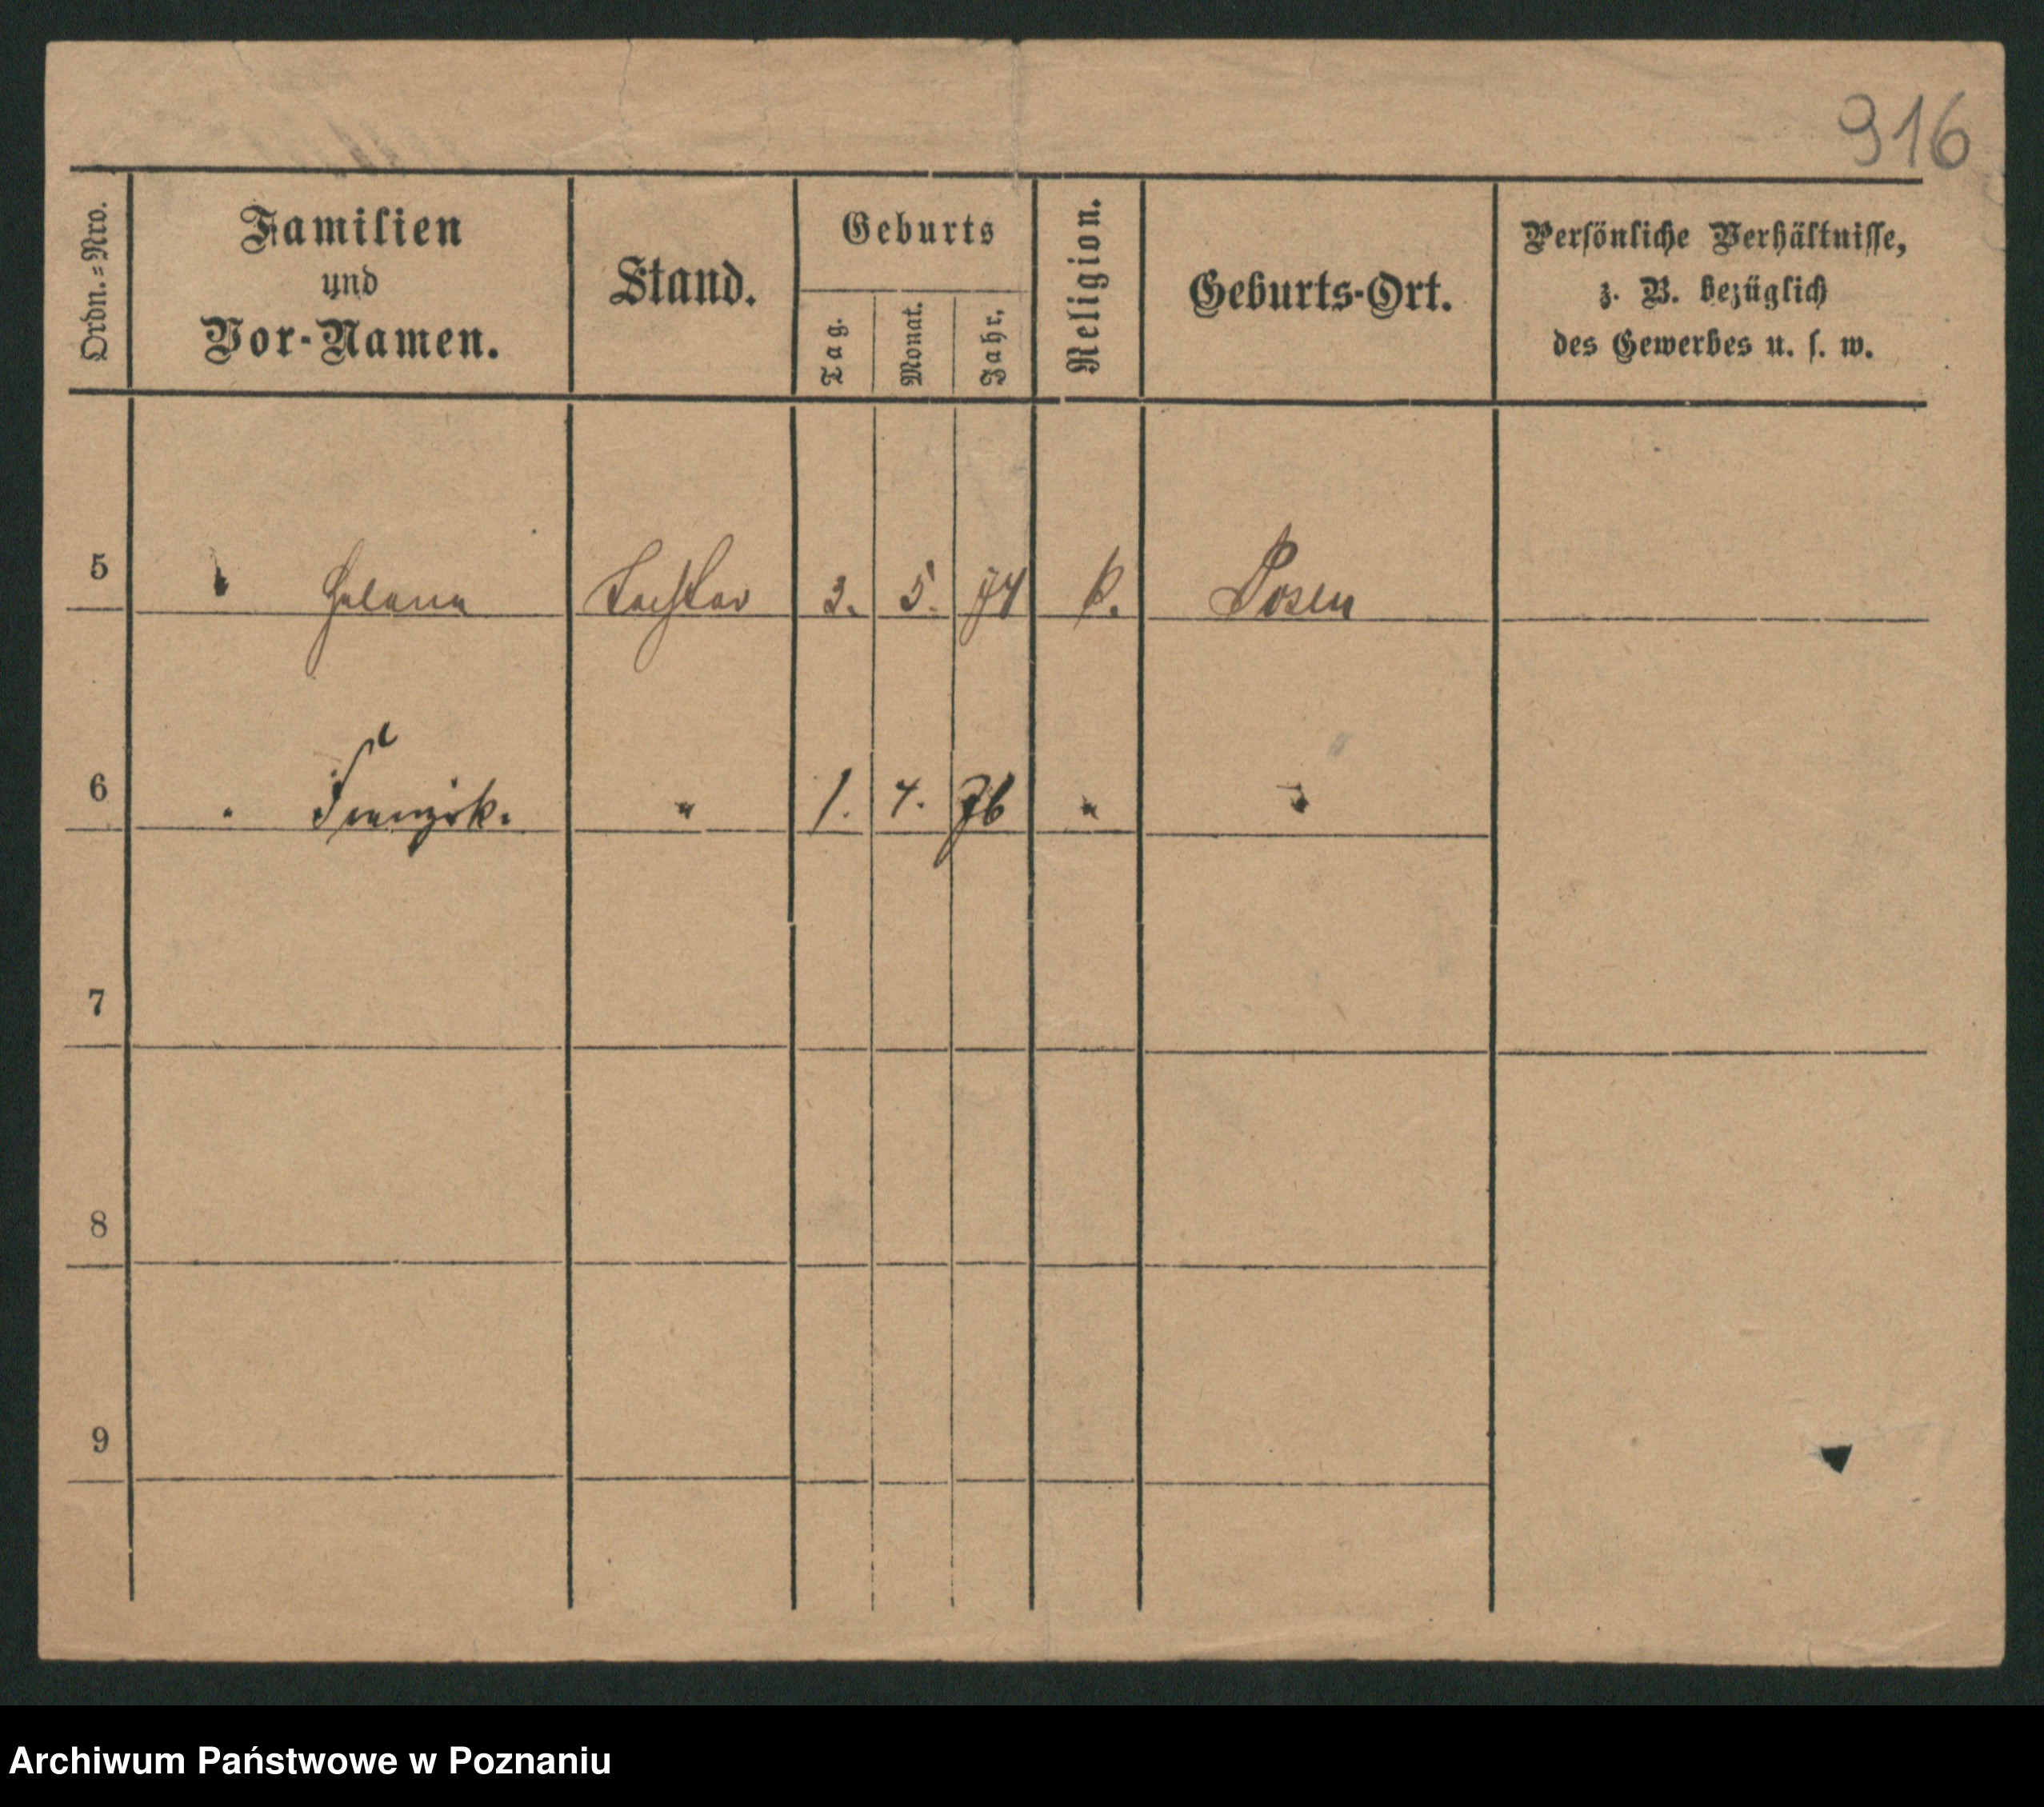 916
Ordn.=Nro.
Familien
und
Vor-Namen.
Stand.
Geburts
Tag.
Monat.
Jahr.
Religion.
Geburts-Ort.
Persönliche Verhältnisse,
z. B. bezüglich
des Gewerbes u. s. w.
5 " Helena Tochter 3. 5. 74 k. Posen
6 " Franzisk. " 1. 4. 76 " "
7
8
9
Archiwum Państwowe w Poznaniu